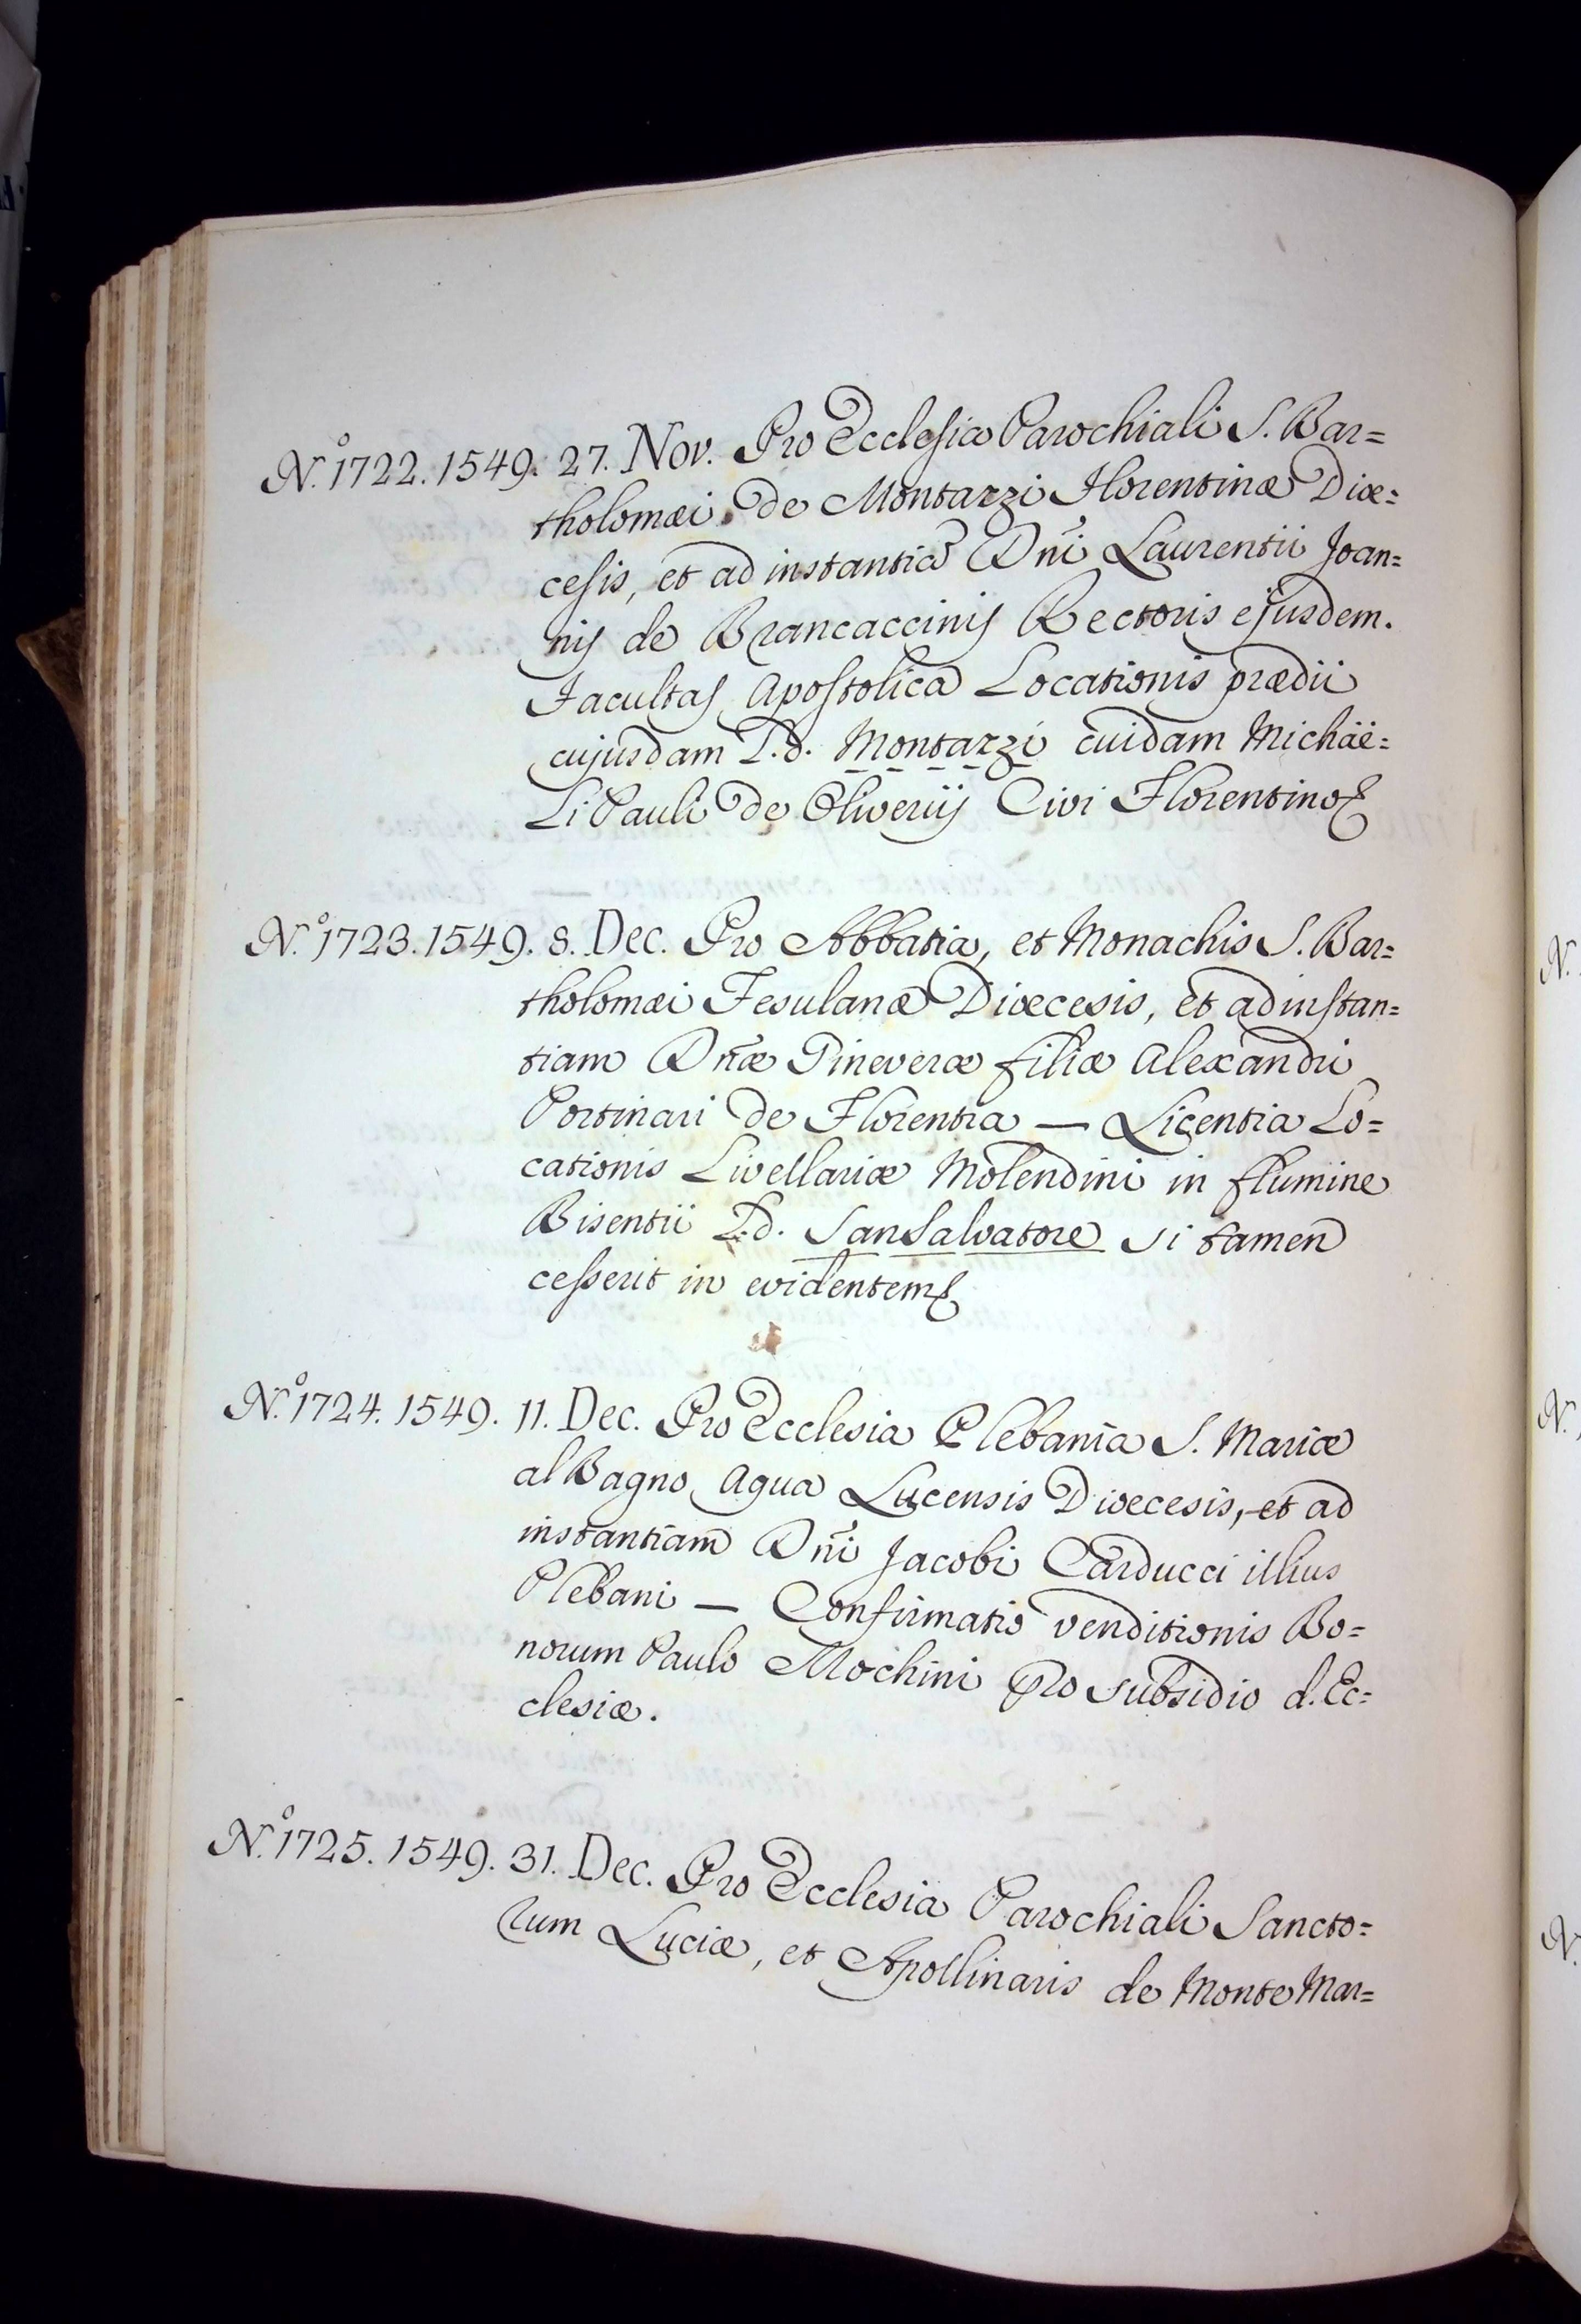 N.º 1722. 1549. 27. Nov. Pro Ecclesia Parochiali S. Bar=
tholomæi de Montazzi Florentinæ Diœ=
cesis, et ad instantiã Dñi Laurentii Joan=
nis de Brancaccinis Rectoris ejusdem.
Facultas Apostolica Locationis prædii
cujusdam L.d. Montazzi cuidam Michäe=
li Pauli de Oliveriis Civi Florentino
N.º 1723. 1549. 8. Dec. Pro Abbatia, et Monachis S. Bar=
tholomæi Fesulanæ Diœcesis, et ad instan=
tiam Dñæ Gineveræ filiæ Alexandri
Portinari de Florentia — Licentia Lo=
cationis Livellariæ Molendini in flumine
Bisentii L.d. San Salvatore si tamen
cesserit in evidentem
N.º 1724. 1549. 11. Dec. Pro Ecclesia Plebania S. Mariæ
al Bagno Agua Lucensis Diœcesis, et ad
instantiam Dñi Jacobi Carducci illius
Plebani — Confirmatio venditionis Bo=
norum Paulo Mochini pro subsidio d. Ec=
clesiæ.
N.º 1725. 1549. 31. Dec. Pro Ecclesia Parochiali Sancto=
rum Luciæ, et Apollinaris de Monte Mar=
N.
N.
N.